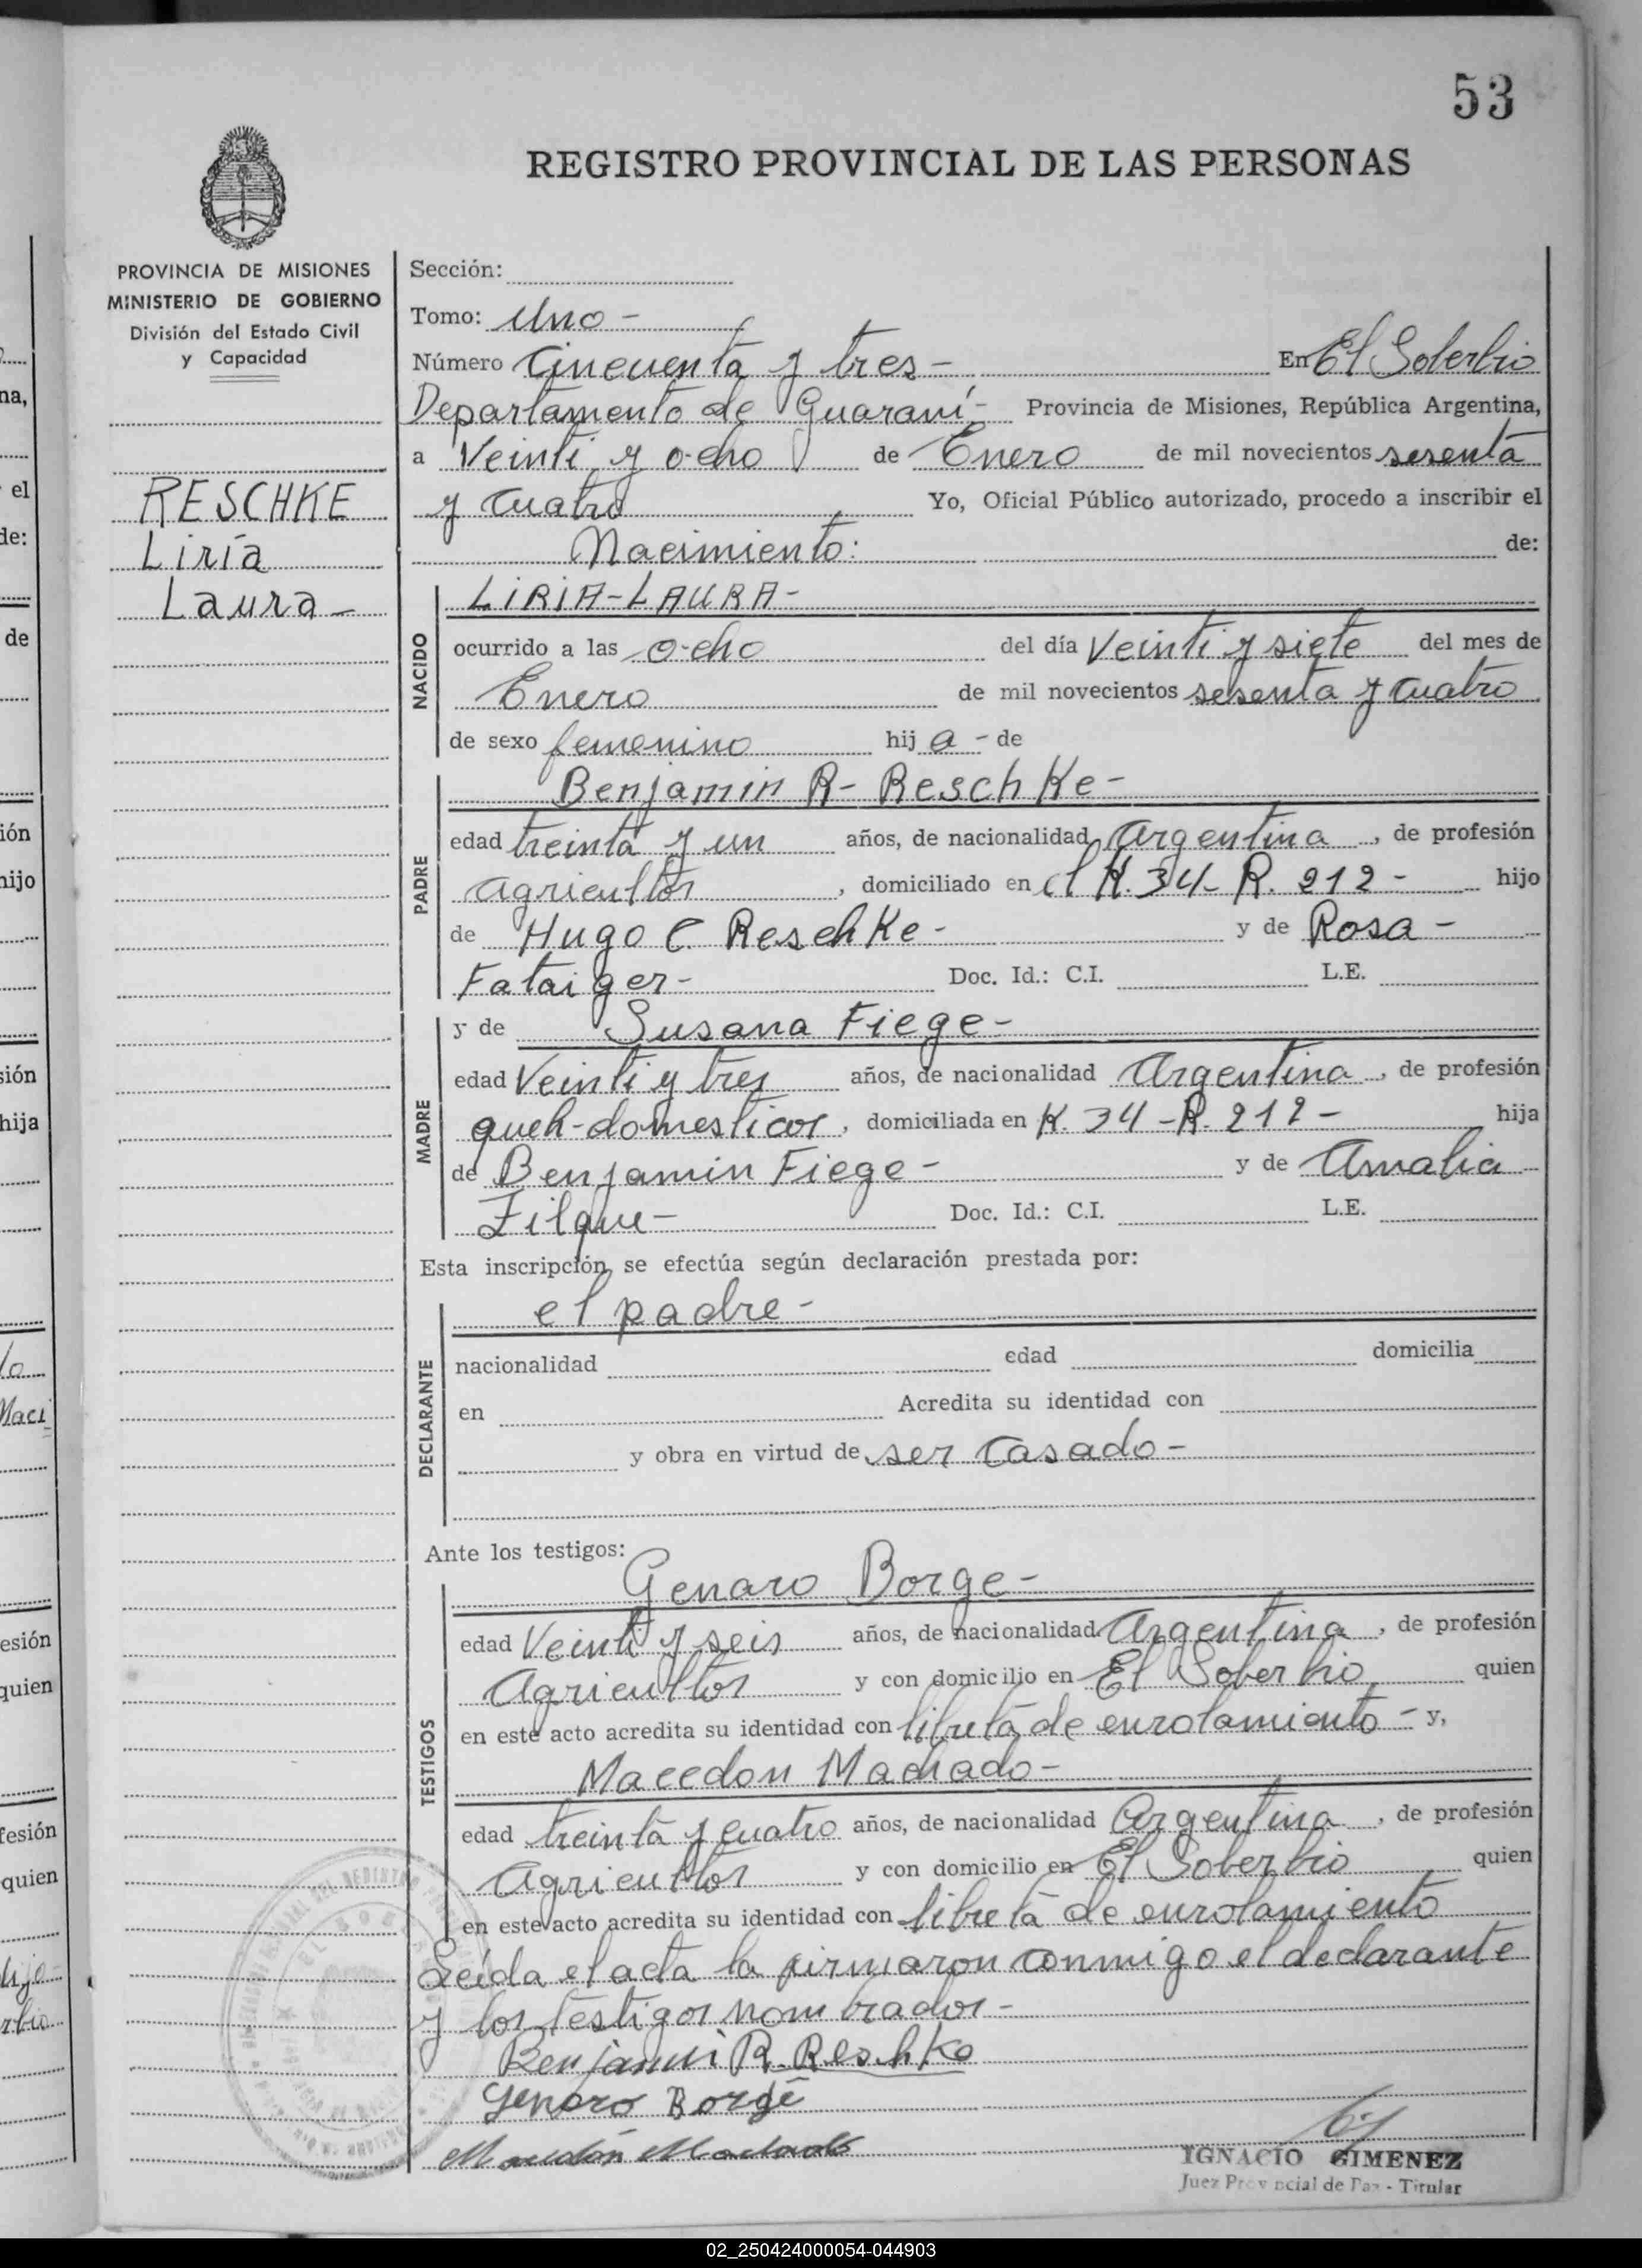 53
REGISTRO PROVINCIAL DE LAS PERSONAS
PROVINCIA DE MISIONES
MINISTERIO DE GOBIERNO
División del Estado Civil
y Capacidad
RESCHKE
Liria
Laura-
Sección:
Tomo: Uno-
Número Cincuenta y tres- En El Soberbio
Departamento de Guaraní- Provincia de Misiones, República Argentina,
a Veinti y ocho de Enero de mil novecientos sesenta
y cuatro Yo, Oficial Público autorizado, procedo a inscribir el
Nacimiento: de:
NACIDO
LIRIA-LAURA-
ocurrido a las ocho del día Veinti y siete del mes de
Enero de mil novecientos sesenta y cuatro
de sexo femenino hij a - de
PADRE
Benjamin R- Reschke-
edad treinta y un años, de nacionalidad Argentina, de profesión
agricultor, domiciliado en el K. 34- R. 212- hijo
de Hugo C. Reschke- y de Rosa-
Fataiger- Doc. Id.: C.I. L.E.
MADRE
y de Susana Fiege-
edad Veinti y tres años, de nacionalidad Argentina, de profesión
queh-domesticos, domiciliada en K. 34-R. 212- hija
de Benjamin Fiege- y de Amalia
Zilque- Doc. Id.: C.I. L.E.
Esta inscripción se efectúa según declaración prestada por:
DECLARANTE
el padre-
nacionalidad edad domicilia
en Acredita su identidad con
y obra en virtud de ser casado-
Ante los testigos:
TESTIGOS
Genaro Borge-
edad Veinti y seis años, de nacionalidad Argentina, de profesión
Agricultor y con domicilio en El Soberbio quien
en este acto acredita su identidad con libreta de enrolamiento- y,
Macedon Machado-
edad treinta y cuatro años, de nacionalidad Argentina, de profesión
Agricultor y con domicilio en El Soberbio quien
en este acto acredita su identidad con libreta de enrolamiento
Leída el acta la firmaron conmigo el declarante
y los testigos nombrados-
Benjamin R. Reschke
Genaro Borge
Macedón Machado
IGNACIO GIMENEZ
Juez Provincial de Paz - Titular
02_250424000054-044903